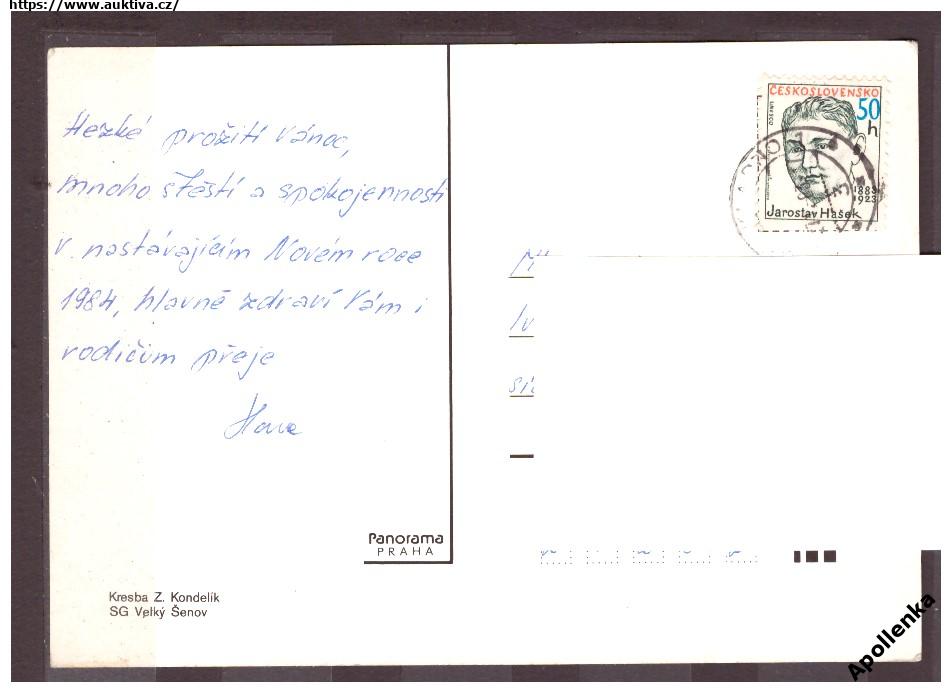 https://www.auktiva.cz/
Hezké prožití Vánoc,
mnoho štěstí a spokojennosti
v nastávajícím Novém roce
1984, hlavně zdraví Vám i
rodičům přeje
Hana
ČESKOSLOVENSKO
50
h
UNESCO
1883
1923
Jaroslav Hašek
Panorama
PRAHA
Kresba Z. Kondelík
SG Velký Šenov
Apollenka